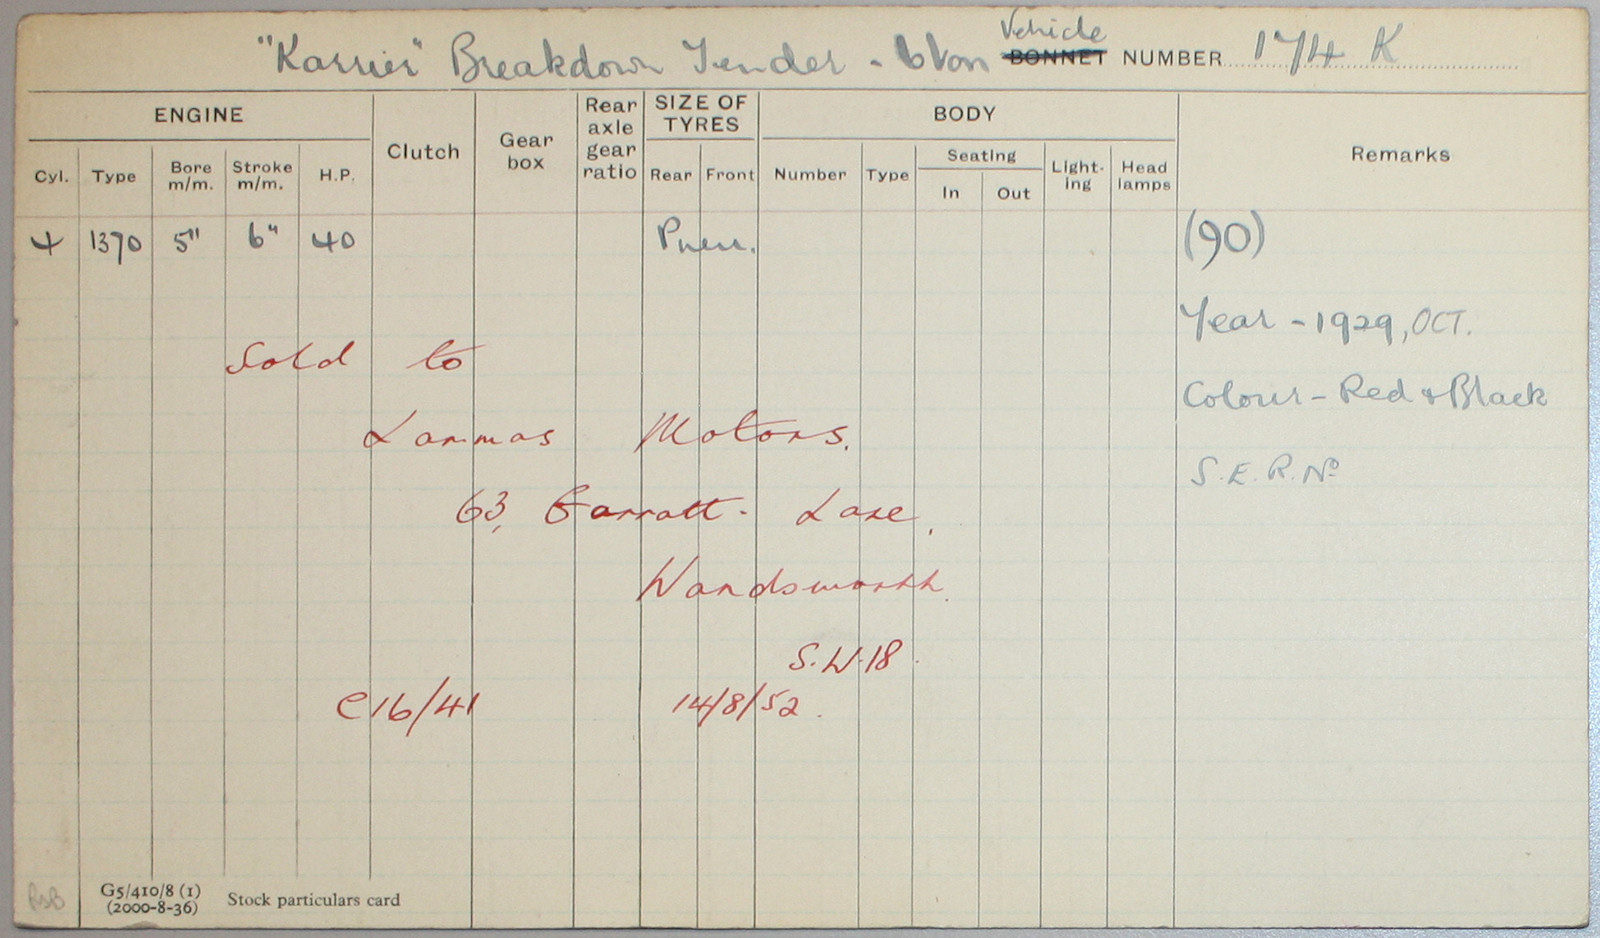 "Karrier" Breakdown Tender - 6 Ton Vehicle BONNET NUMBER 174 K
ENGINE Clutch Gear box Rear axle gear ratio SIZE OF TYRES BODY Remarks
Cyl. Type Bore m/m. Stroke m/m. H.P. Rear Front Number Type Seating In Out Light-ing Head lamps
4 1370 5" 6" 40 Pneu. (90)
Year - 1929, OCT.
Sold to
Colour - Red & Black
Lammas Motors.
S.E.R. No
63, Garratt Lane,
Wandsworth.
S.W.18.
C16/41 14/8/52.
G5/410/8 (1)
(2000-8-36) Stock particulars card